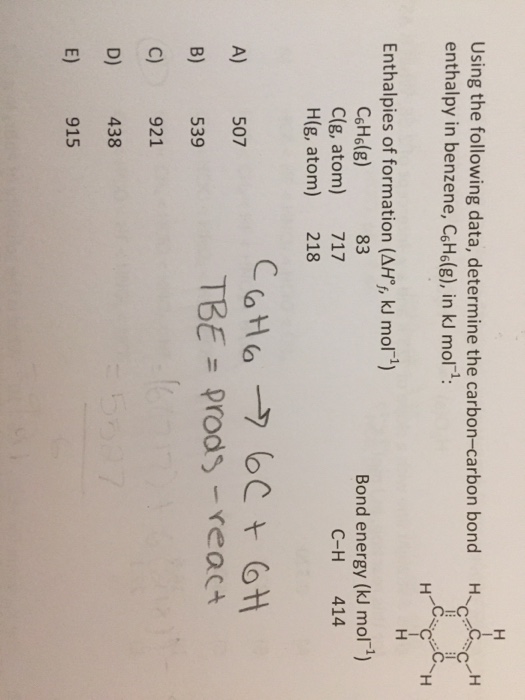 Using the following data, determine the carbon–carbon bond
enthalpy in benzene, C₆H₆(g), in kJ mol⁻¹:
H
H C H
C C
C C
H C H
H
Enthalpies of formation (ΔH°f, kJ mol⁻¹)
C₆H₆(g) 83
C(g, atom) 717
H(g, atom) 218
Bond energy (kJ mol⁻¹)
C–H 414
A) 507
B) 539
C) 921
D) 438
E) 915
C6H6 → 6C + 6H
TBE = prods - react